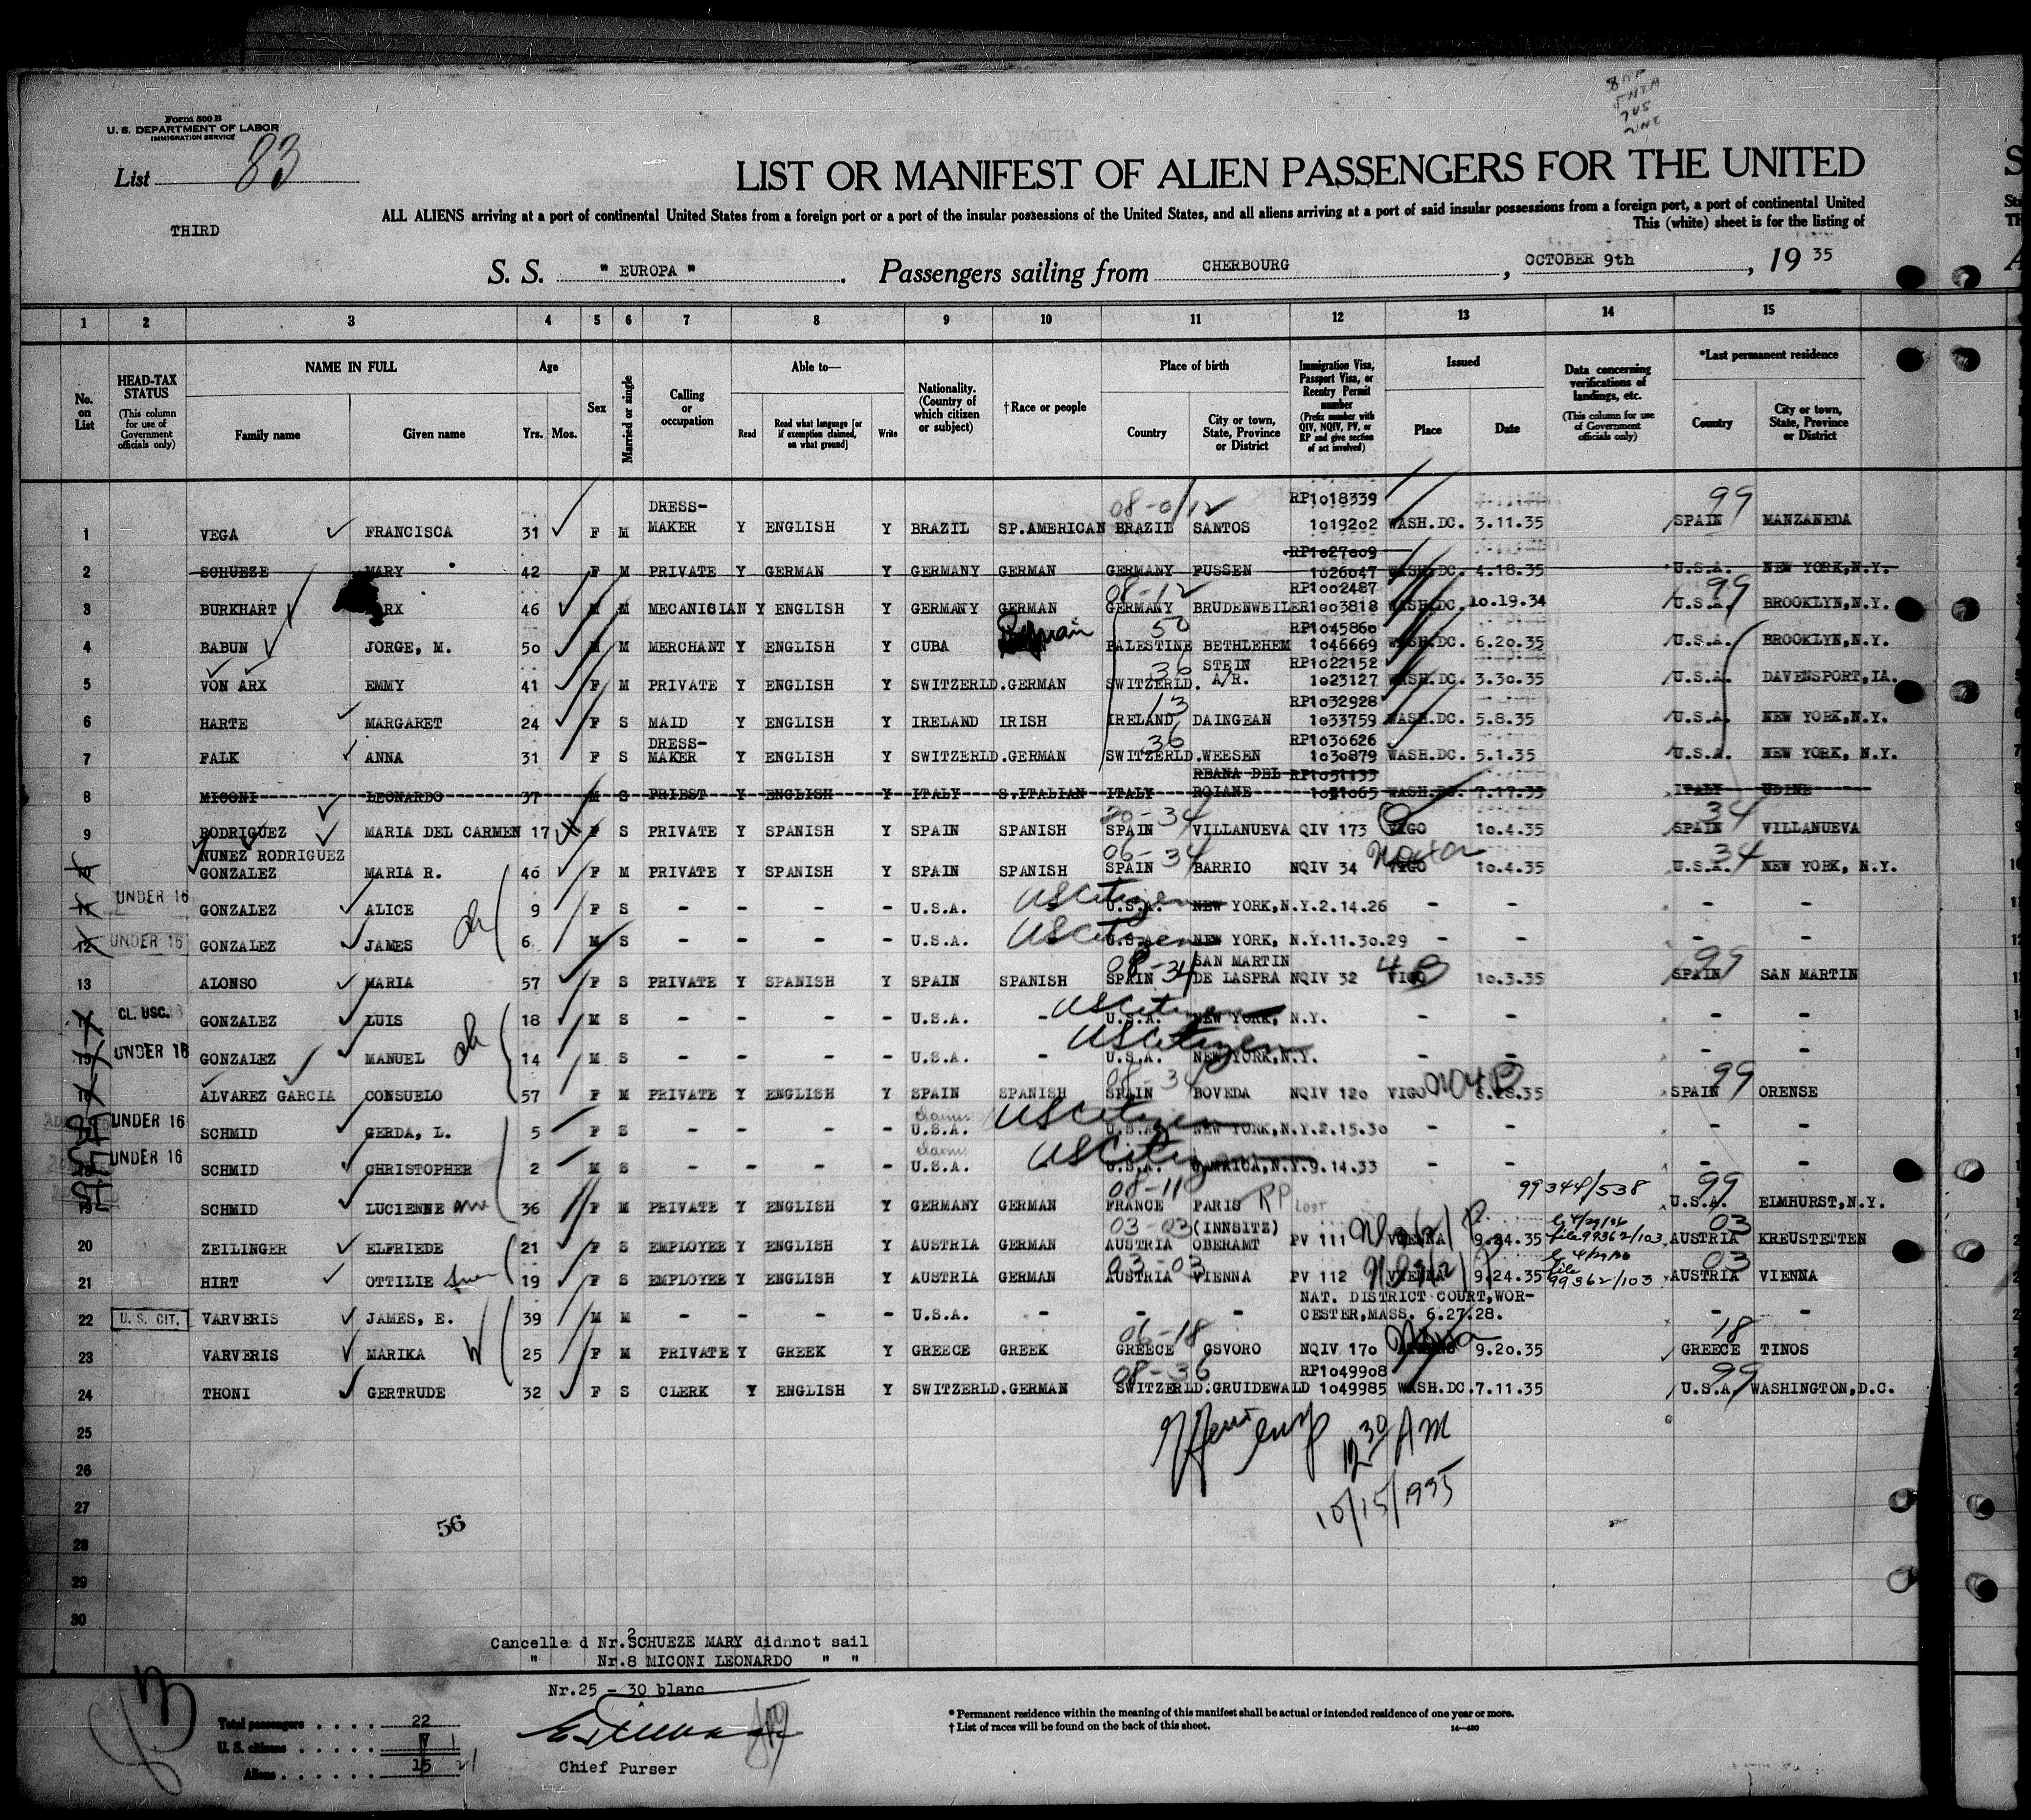 Form 500 B
U. S. DEPARTMENT OF LABOR
IMMIGRATION SERVICE
List 83
THIRD
LIST OR MANIFEST OF ALIEN PASSENGERS FOR THE UNITED
ALL ALIENS arriving at a port of continental United States from a foreign port or a port of the insular possessions of the United States, and all aliens arriving at a port of said insular possessions from a foreign port, a port of continental United
This (white) sheet is for the listing of
S. S. " EUROPA ". Passengers sailing from CHERBOURG, OCTOBER 9th, 19 35
1 2 3 4 5 6 7 8 9 10 11 12 13 14 15
No. on List
HEAD-TAX STATUS (This column for use of Government officials only)
NAME IN FULL Family name Given name
Age Yrs. Mos.
Sex
Married or single
Calling or occupation
Able to— Read Read what language [or if exemption claimed, on what ground] Write
Nationality. (Country of which citizen or subject)
† Race or people
Place of birth Country City or town, State, Province or District
Immigration Visa, Passport Visa, or Reentry Permit number (Prefix number with QIV, NQIV, PV, or RP and give section of act involved)
Issued Place Date
Data concerning verifications of landings, etc. (This column for use of Government officials only)
*Last permanent residence Country City or town, State, Province or District
08-0/12 RP1018339 99
1 VEGA FRANCISCA 31 F M DRESS-MAKER Y ENGLISH Y BRAZIL SP.AMERICAN BRAZIL SANTOS 1019202 WASH.DC. 3.11.35 SPAIN MANZANEDA
RP1027009
2 SCHUEZE MARY 42 F M PRIVATE Y GERMAN Y GERMANY GERMAN GERMANY FUSSEN 1026047 WASH.DC. 4.18.35 U.S.A. NEW YORK,N.Y.
08-12 RP1002487 99
3 BURKHART ARX 46 M M MECANICIAN Y ENGLISH Y GERMANY GERMAN GERMANY BRUDENWEILER 1003818 WASH.DC. 10.19.34 U.S.A. BROOKLYN,N.Y.
50 RP1045860
4 BABUN JORGE, M. 50 M M MERCHANT Y ENGLISH Y CUBA PALESTINE BETHLEHEM 1046669 WASH.DC. 6.20.35 U.S.A. BROOKLYN,N.Y.
36 STEIN RP1022152
5 VON ARX EMMY 41 F M PRIVATE Y ENGLISH Y SWITZERLD. GERMAN SWITZERLD. A/R. 1023127 WASH.DC. 3.30.35 U.S.A. DAVENSPORT,IA.
13 RP1032928
6 HARTE MARGARET 24 F S MAID Y ENGLISH Y IRELAND IRISH IRELAND DAINGEAN 1033759 WASH.DC. 5.8.35 U.S.A. NEW YORK,N.Y.
36 RP1030626
7 FALK ANNA 31 F S DRESS-MAKER Y ENGLISH Y SWITZERLD. GERMAN SWITZERLD. WEESEN 1030879 WASH.DC. 5.1.35 U.S.A. NEW YORK, N.Y.
REANA DEL RP1051133
8 MICONI LEONARDO 37 M S PRIEST Y ENGLISH Y ITALY S.ITALIAN ITALY ROIANE 1051065 WASH.DC. 7.17.35 ITALY UDINE
20-34 34
9 RODRIGUEZ MARIA DEL CARMEN 17 F S PRIVATE Y SPANISH Y SPAIN SPANISH SPAIN VILLANUEVA QIV 173 VIGO 10.4.35 SPAIN VILLANUEVA
NUNEZ RODRIGUEZ 06-34 34
10 GONZALEZ MARIA R. 40 F M PRIVATE Y SPANISH Y SPAIN SPANISH SPAIN BARRIO NQIV 34 VIGO 10.4.35 U.S.A. NEW YORK, N.Y.
11 UNDER 16 GONZALEZ ALICE 9 F S - - - - U.S.A. US Citizen U.S.A. NEW YORK,N.Y.2.14.26 - - - -
12 UNDER 16 GONZALEZ JAMES 6 M S - - - - U.S.A. US Citizen U.S.A. NEW YORK, N.Y.11.30.29 - - - -
08-34 SAN MARTIN 99
13 ALONSO MARIA 57 F S PRIVATE Y SPANISH Y SPAIN SPANISH SPAIN DE LASPRA NQIV 32 VIGO 10.3.35 SPAIN SAN MARTIN
14 CL. USC. GONZALEZ LUIS 18 M S - - - - U.S.A. - US Citizen U.S.A. NEW YORK, N.Y. - - - -
15 UNDER 16 GONZALEZ MANUEL 14 M S - - - - U.S.A. - US Citizen U.S.A. NEW YORK,N.Y. - - - -
08-34 99
16 ALVAREZ GARCIA CONSUELO 57 F M PRIVATE Y ENGLISH Y SPAIN SPANISH SPAIN BOVEDA NQIV 120 VIGO 8.28.35 SPAIN ORENSE
17 UNDER 16 SCHMID GERDA, L. 5 F S - - - - U.S.A. US Citizen U.S.A. NEW YORK,N.Y.2.15.30 - - - -
18 UNDER 16 SCHMID CHRISTOPHER 2 M S - - - - U.S.A. US Citizen U.S.A. JAMAICA,N.Y.9.14.33 - - - -
08-11 99344/538 99
19 SCHMID LUCIENNE 36 F M PRIVATE Y ENGLISH Y GERMANY GERMAN FRANCE PARIS RP Lost U.S.A. ELMHURST,N.Y.
03-03 (INNSITZ) 03
20 ZEILINGER ELFRIEDE 21 F S EMPLOYEE Y ENGLISH Y AUSTRIA GERMAN AUSTRIA OBERAMT PV 111 VIENNA 9.24.35 file 99362/103 AUSTRIA KREUSTETTEN
03-03 03
21 HIRT OTTILIE 19 F S EMPLOYEE Y ENGLISH Y AUSTRIA GERMAN AUSTRIA VIENNA PV 112 VIENNA 9.24.35 file 99362/103 AUSTRIA VIENNA
NAT. DISTRICT COURT,WOR-
22 U. S. CIT. VARVERIS JAMES, E. 39 M M - - - - U.S.A. - - - CESTER,MASS. 6.27.28. - -
06-18 18
23 VARVERIS MARIKA 25 F M PRIVATE Y GREEK Y GREECE GREEK GREECE GSVORO NQIV 170 9.20.35 GREECE TINOS
08-36 RP1049908 99
24 THONI GERTRUDE 32 F S CLERK Y ENGLISH Y SWITZERLD. GERMAN SWITZERLD. GRUIDEWALD 1049985 WASH.DC. 7.11.35 U.S.A. WASHINGTON,D.C.
25
12 30 AM
26
27
10/15/1935
56
28
29
30
Cancelle d Nr.2 SCHUEZE MARY didnnot sail
" Nr.8 MICONI LEONARDO " "
Nr.25 - 30 blanc
Total passengers . . . . 22
U. S. citizens . . . . . 7 1
Aliens . . . . . . 15 21
Chief Purser
* Permanent residence within the meaning of this manifest shall be actual or intended residence of one year or more.
† List of races will be found on the back of this sheet.
14—430